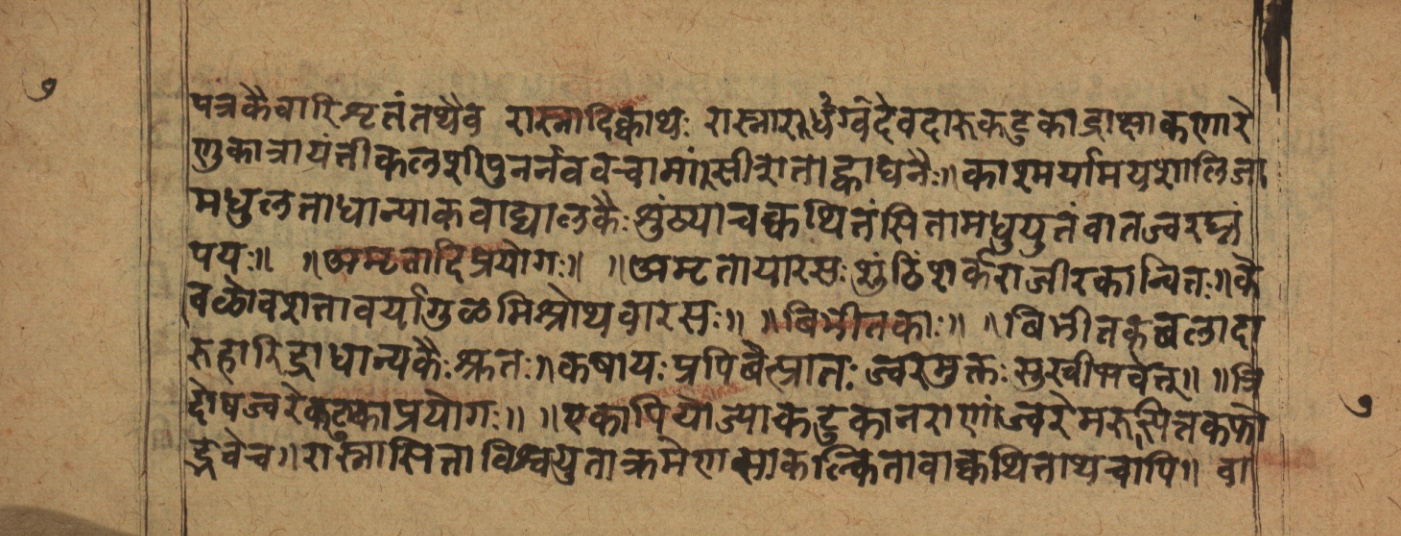 पत्रकैर्वारिशृतंतथैव रास्नादिक्वाथः रास्नारग्वधदेवदारुकटुकाद्राक्षाकणारे
णुकात्रायंतीकलशीपुनर्नववचामांसीत्राताह्वाघनैः॥काश्मर्यामयशालिजा
मधुलताधान्याकवाद्यालकैः शुंठ्याचक्वथितंसितामधुयुतंवातज्वरघ्नं
पयः॥ ॥अमृतादिप्रयोगः॥ ॥अमृतायारसःशुंठिंशर्कराजीरकान्वितः॥के
वळोवशतावर्यागुळमिश्रोथवारसः॥ ॥बिभीतकाः॥ ॥बिभीतकबलादा
रुहारिद्राधान्यकैःश्रुतः॥कषायःप्रपिबेत्प्रातःज्वरमुक्तःसुखीभवेत्॥ ॥त्रि
दोषज्वरेकटुकाप्रयोगः॥ ॥एकापियोज्याकटुकानराणांज्वरेमरुत्पित्तकफो
द्भवेच॥रास्नासिताविश्वयुताक्रमेणसाकल्कितावाक्वथिताथचापि॥ वा
७
७